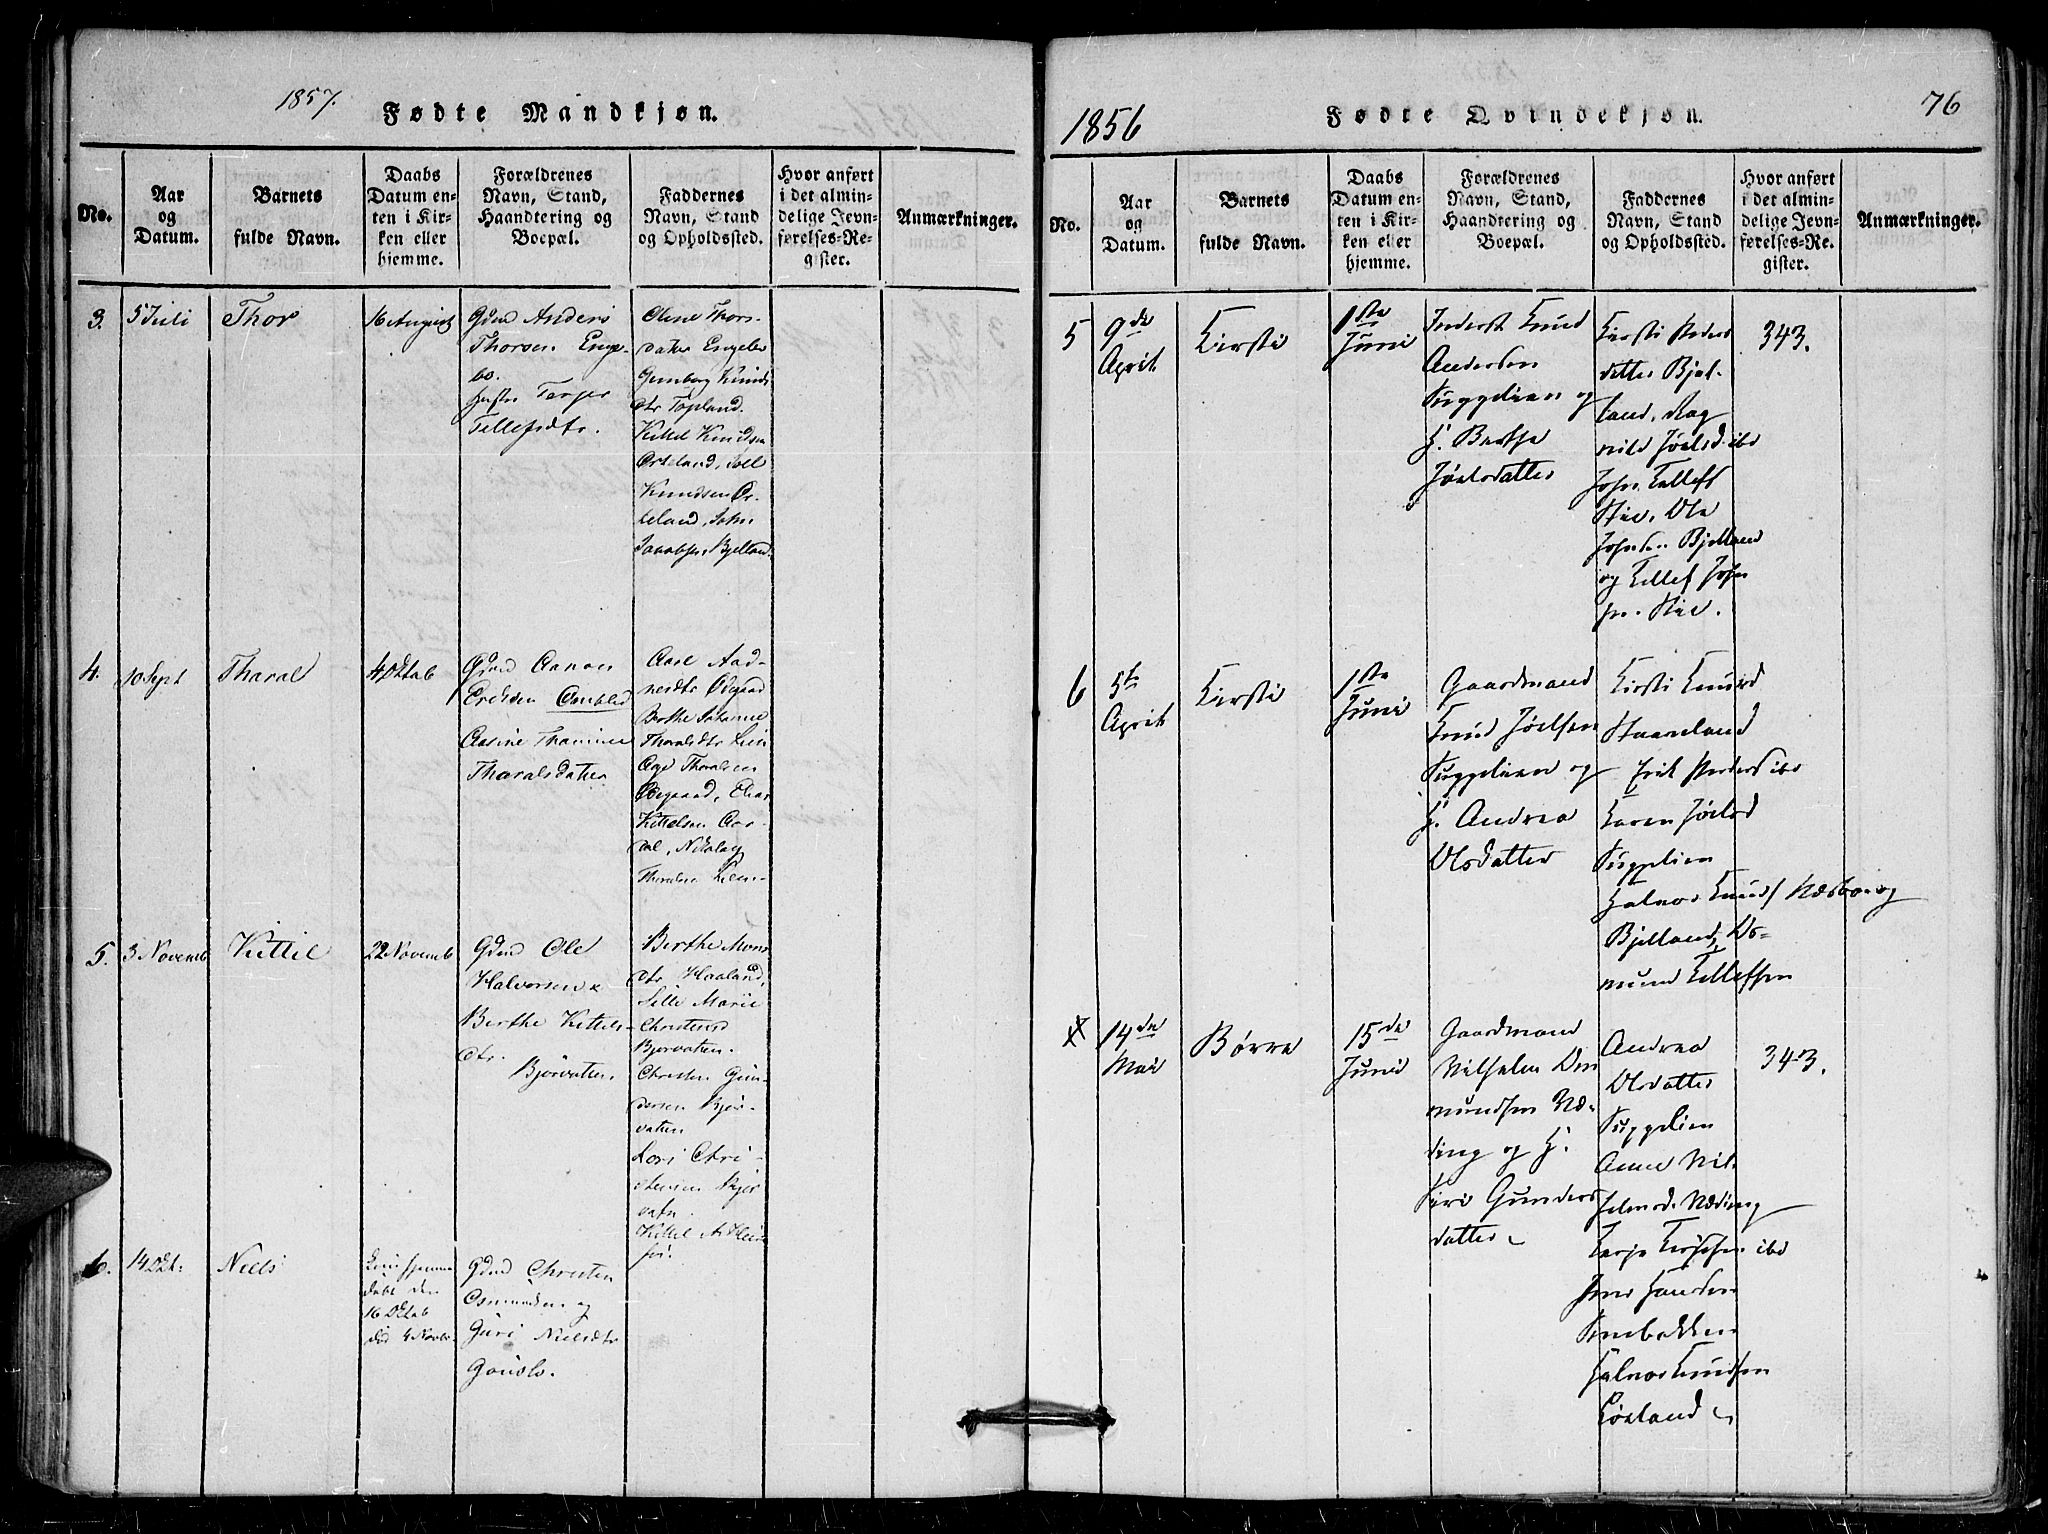 1857.
Fødte Mandkjøn.
No.
Aar
og
Datum.
Barnets
fulde Navn.
Daabs
Datum en-
ten i Kir-
ken eller
hjemme.
Forældrenes
Navn, Stand,
Haandtering og
Boepæl.
Faddernes
Navn, Stand
og Opholdssted.
Hvor anført
i det almin-
delige Jevn-
førelses-Re-
gister.
Anmærkninger.
3.
5 Juli
Thor
16 August
Gdmd Anders
Thorsen Enge-
bo.
Hustr Tarjer
Tellefsdtr.
Olene Thors-
datter Engebo
Gunborg Knuds
dtr Topland.
Kittel Knudsen
Knudsen
John
Jacobsen Bjelland.
4.
10 Sept
Tharal
4 Oktob
Gdmd Aanon
Eriksen
Aasine Thamine
Tharalsdatter
Aase Aad-
nesdtr Ødegaard
Berthe Johanne
Tharalsdtr Lien
Age Tharalsen
Ødegaard, Elias
Kittelsen
Nikolay
Tharalsen Lien
5.
3 Novemb
Kittil
22 Novemb
Gdmd Ole
Halvorsen &
Berthe Kittels-
dtr.
Bjorvatten.
Berthe Mons
dtr Haaland,
Sille Marie
Christensd
Bjorvatten.
Christen Gun-
dersen Bjor-
vatten
Chri-
stensen Bjor
vatn.
Kittel
6.
14 Okt.
Niels
døbt den
16 Oktob
død 4 Novbr.
Gdmd Christen
Osmundsen og
Guri Nielsdtr
1856
Fødte Qvindekjøn.
76
No.
Aar
og
Datum.
Barnets
fulde Navn.
Daabs
Datum en-
ten i Kir-
ken eller
hjemme.
Forældrenes
Navn, Stand,
Haandtering og
Boepæl.
Faddernes
Navn, Stand
og Opholdssted.
Hvor anført
i det almin-
delige Jevn-
førelses-Re-
gister.
Anmærkninger.
5
9de
April
Kirsti
1ste
Juni
Inderst Knud
Andersen
Suggelien og
H. Berthe
Joelsdatter
Kirsti Peders
datter Bjel-
land, Rag
nild Joelsd. ibd
John Tellefs
Ole
Johnsen Bjelland
og Tellef John
343.
6
5te
April
Kirsti
1ste
Juni
Gaardmand
Knud Joelsen
Suggelien og
H. Andrea
Olsdatter
Kirsti Knusd
Staaneland
Erik Peders ibd
Karen Joelsd
Suggelien
Halvor Knuds Næsbø og
Bjelland, Os-
mund Tellefsen
14de
Mai
Børre
15de
Juni
Gaardmand
Vilhelm Os
mundsen Næ-
ding og H.
Siri Gunders
datter
Andrea
Olsdatter
Suggelien
Anne Vil-
helmsd. Næding
Terje ibd
Jens Hansen
Halvor Knudsen
343.